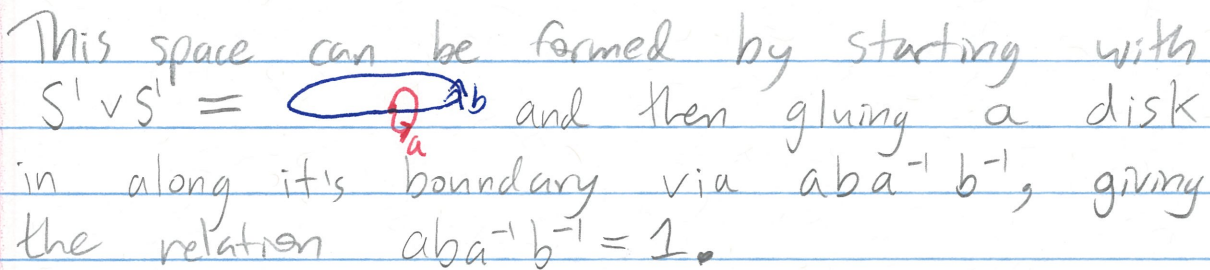 This space can be formed by starting with
S¹ ∨ S¹ = b a and then gluing a disk
in along it's boundary via aba⁻¹b⁻¹, giving
the relation aba⁻¹b⁻¹ = 1.